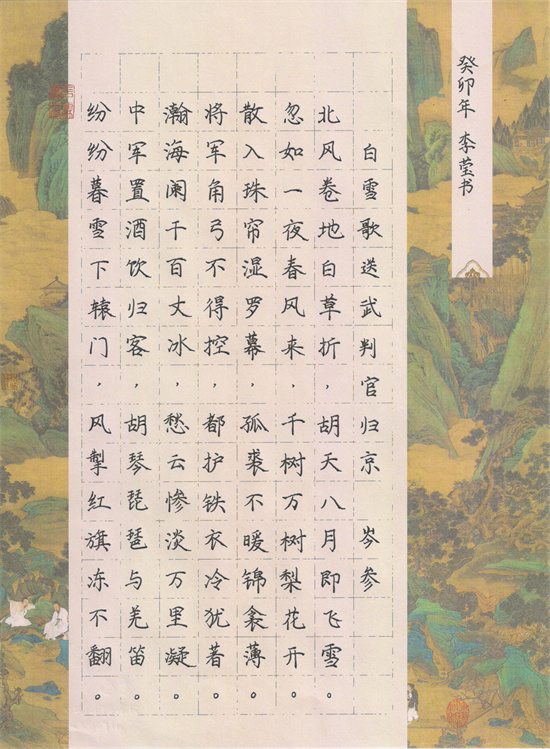 癸卯年 李莹书
白雪歌送武判官归京 岑参
北风卷地白草折,胡天八月即飞雪。
忽如一夜春风来,千树万树梨花开。
散入珠帘湿罗幕,孤裘不暖锦衾薄。
将军角弓不得控,都护铁衣冷犹着。
瀚海阑干百丈冰,愁云惨淡万里凝。
中军置酒饮归客,胡琴琵琶与羌笛。
纷纷暮雪下辕门,风掣红旗冻不翻。